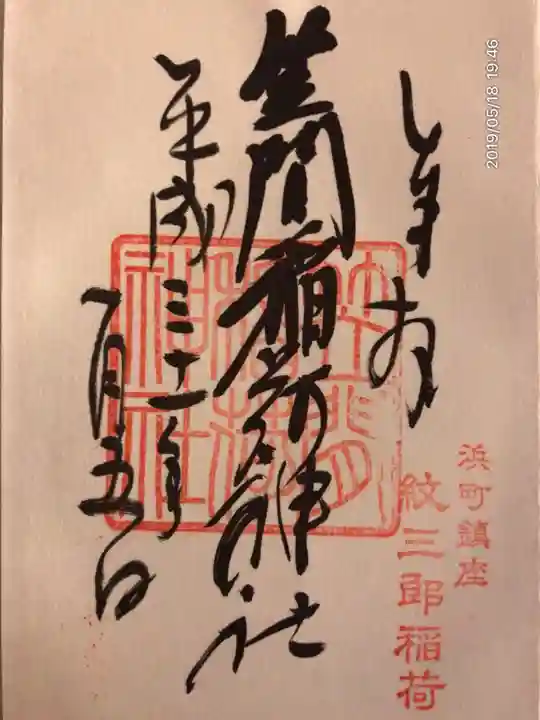 奉拝
浜町鎮座
紋三郎稲荷
笠間稲荷神社
平成三十一年
一月五日
2019/05/18 19:46